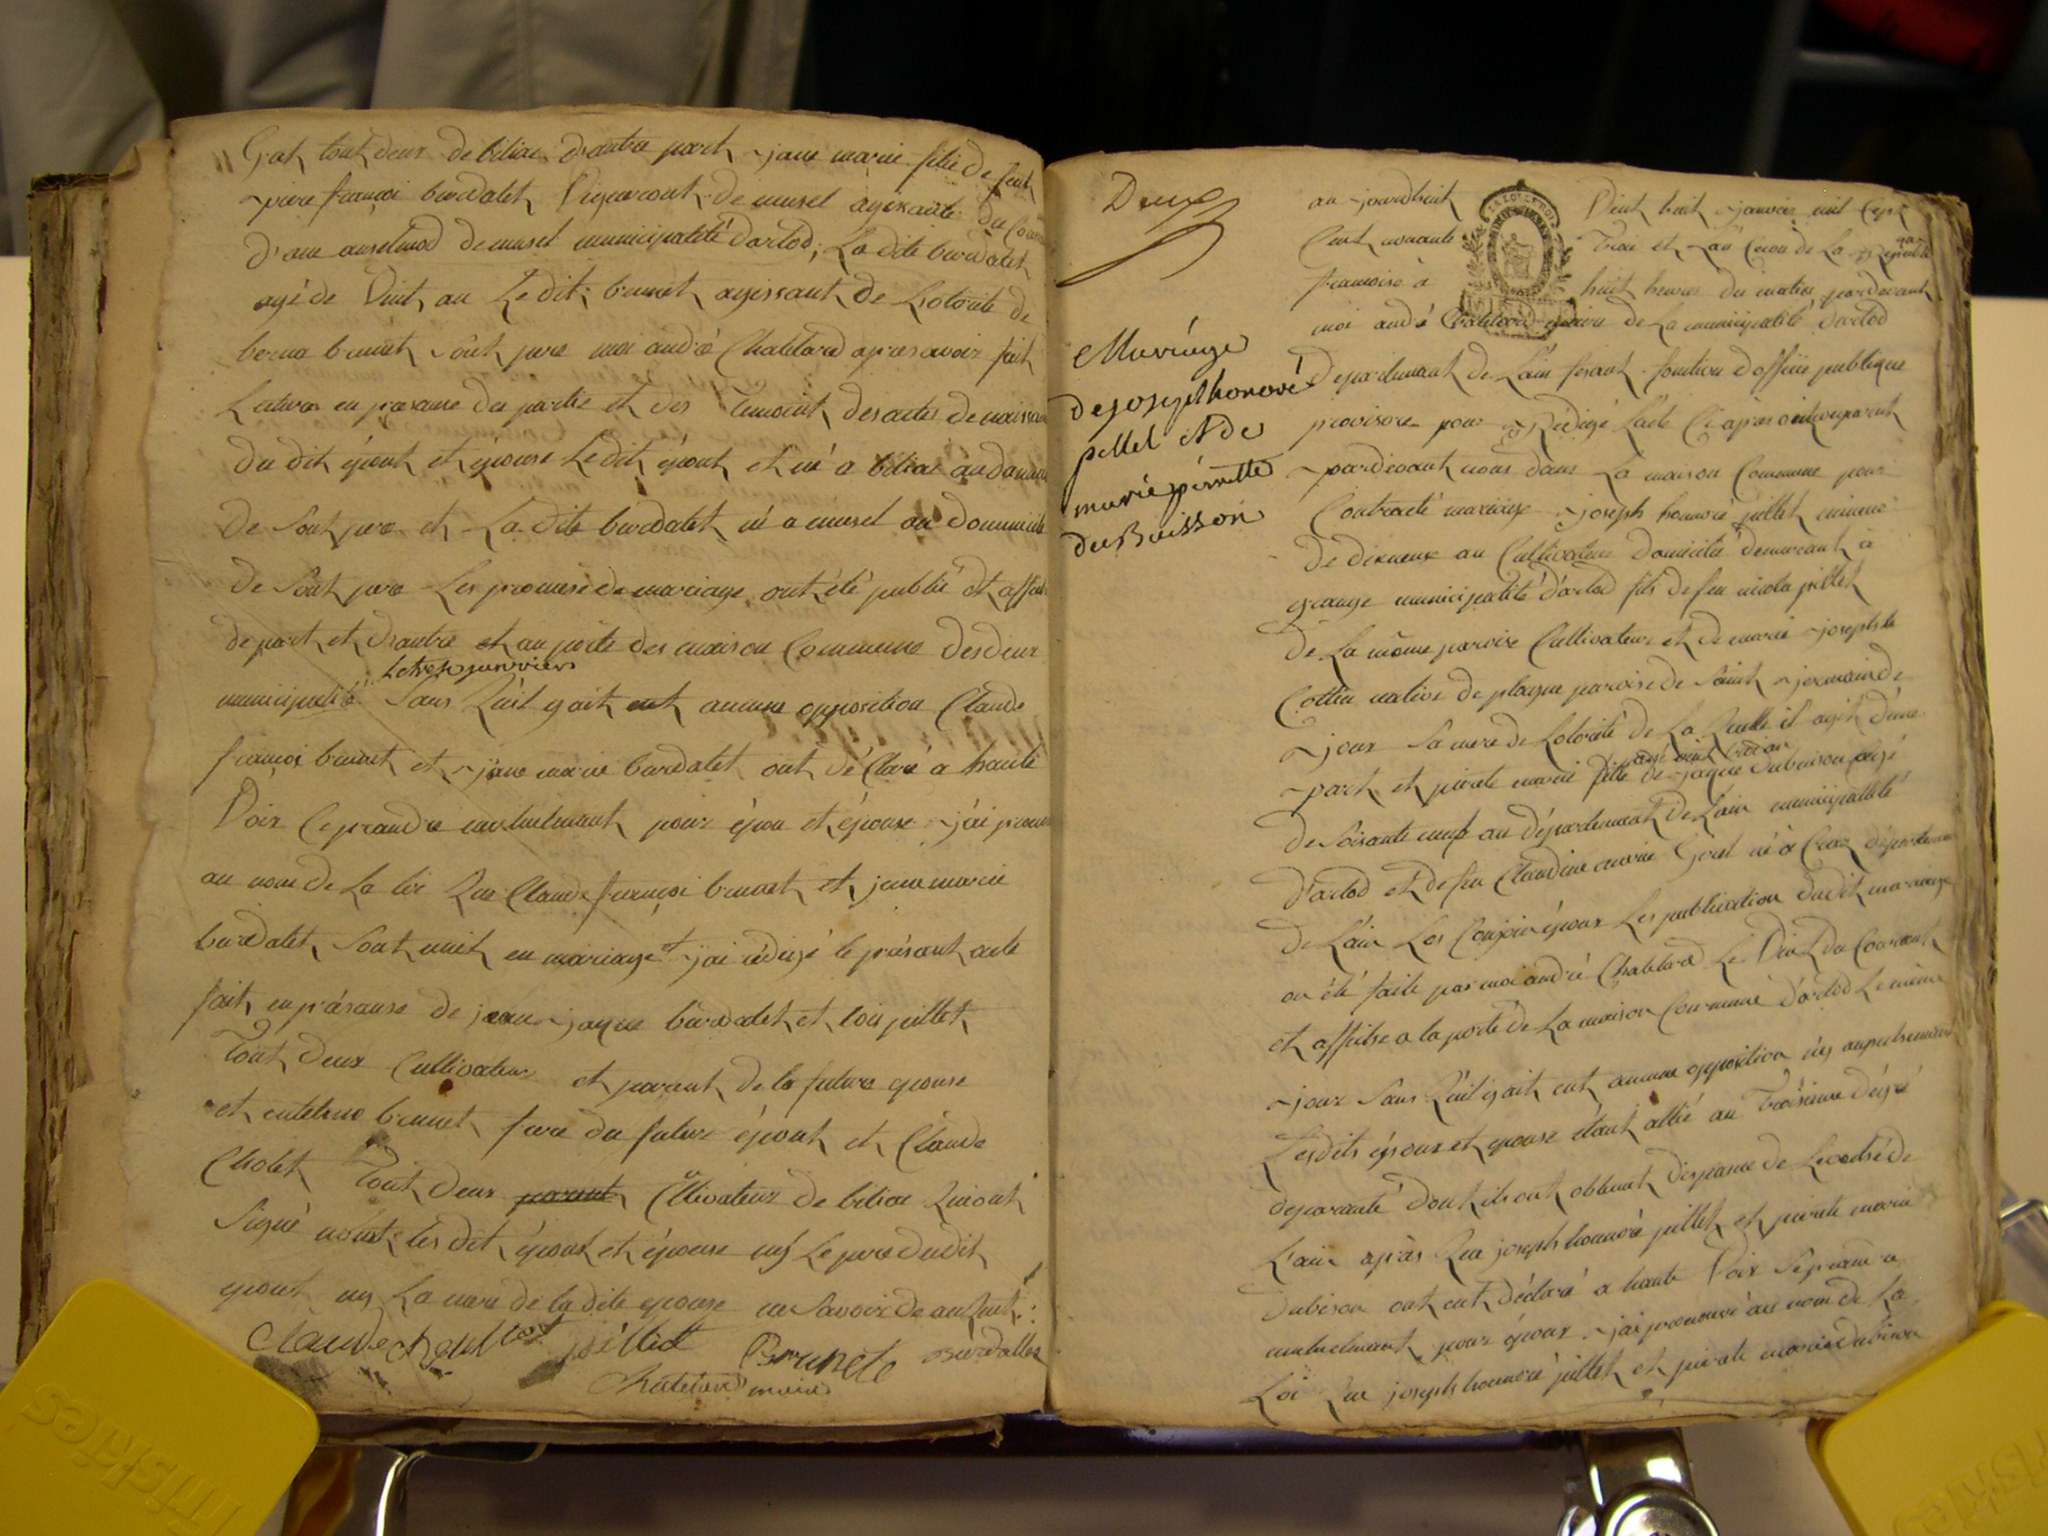 Gat tout deux de biliac d'autre part jane marie fille de feu
piere françoi burdalet Vigneront de musel agissante du Cons
d'ane anselmod de musel municipalité darlod, La dite burdalet
agé de Vint an Le dit brunet agissant de Lotorité de
brunet Sont pere moi andré Chatelard apres avoir fait
Lecture en presance des partie et des Temoint des actes de naissan
du dit épout et épouse Le dit épout et né a biliac au domi
de Sont pere et La dite burdalet né a musel au domicile
de Sont pere Les promese de mariage ont été publié et affi
de part et d'autre et au porte des maison Commune des deux
Letrois janvriers
municipalité Sans Qu'il y ait eut aucune opposition Claude
françoi brunet et jane marie burdalet ont déClaré a haute
Voix Ce prandre mutuelmant pour épou et épouse j'ai prono
au nom de La loi Que Claude françoi brunet et jane marie
burdalet Sont unit en mariage et j'ai rédigé le présant acte
fait en présanse de jean jaque burdalet et loui pillet
Tout deux Cultivateur et parent de la future épouse
et brunet frere du futur épout et Claude
Cholet Tout deux parent Cultivateur de biliac Qui ont
Signé les dit épout et épouse ny Le pere dudit
epout ny La mere de la dite epouse ne Savoir de anQuit
Claude pillet Brunet Burdallet
Chatelard maire
Deux
Mariage
de joseph honoré
pillet et de
marie pérrette
du Buisson
au jourdhuit Vint huit janvier mil Sept
Cent nonante Troi et Lan Cecon de La Répu
francoise à huit heures du matin pardevant
moi andré Chatelard maire de La municipalité darlod
departemant de Lain fesant fonction d'offise publique
provisore pour Rédigé Lacte Ci apres ont comparut
pardevant nous dans La maison Commune pour
Contracté mariage joseph honoré pillet
de an Cultivateur domicilié demeurant à
grange municipalité d'arlod fils de feu nicola pillet
de La même paroise Cultivateur et de marie josephte
Cottin native de plagne paroise de Saint jermain de
joux Sa mere de Lotorité de La Quelle il agit d'une
agé vint troi an
part et pierete marie fille de jaque dubuison agé
de Soisante neuf an département de Lain municipalité
d'arlod et de feu Claudine marie Goret né à Craz département
de Lain Les Conjoin époux Les publication dudit mariage
on été faite par moi andré Chatelard Le Vint du Courant
et affiche a la porte de La maison Commune d'arlod Le même
jour Sans Qu'il y ait eut aucune opposition
Lesdits époux et épouse étant allié au Troisieme degré
de paranté dont ils ont obtenut dispance de Levéché de
L'ain après Que joseph honnoré pillet et pierete marie
dubison ont eut déclaré a haute Voix Se prandre
mutuelmant pour époux j'ai prononcé au nom de La
Loi Que joseph honnoré pillet et pierete marie dubison
Triskles